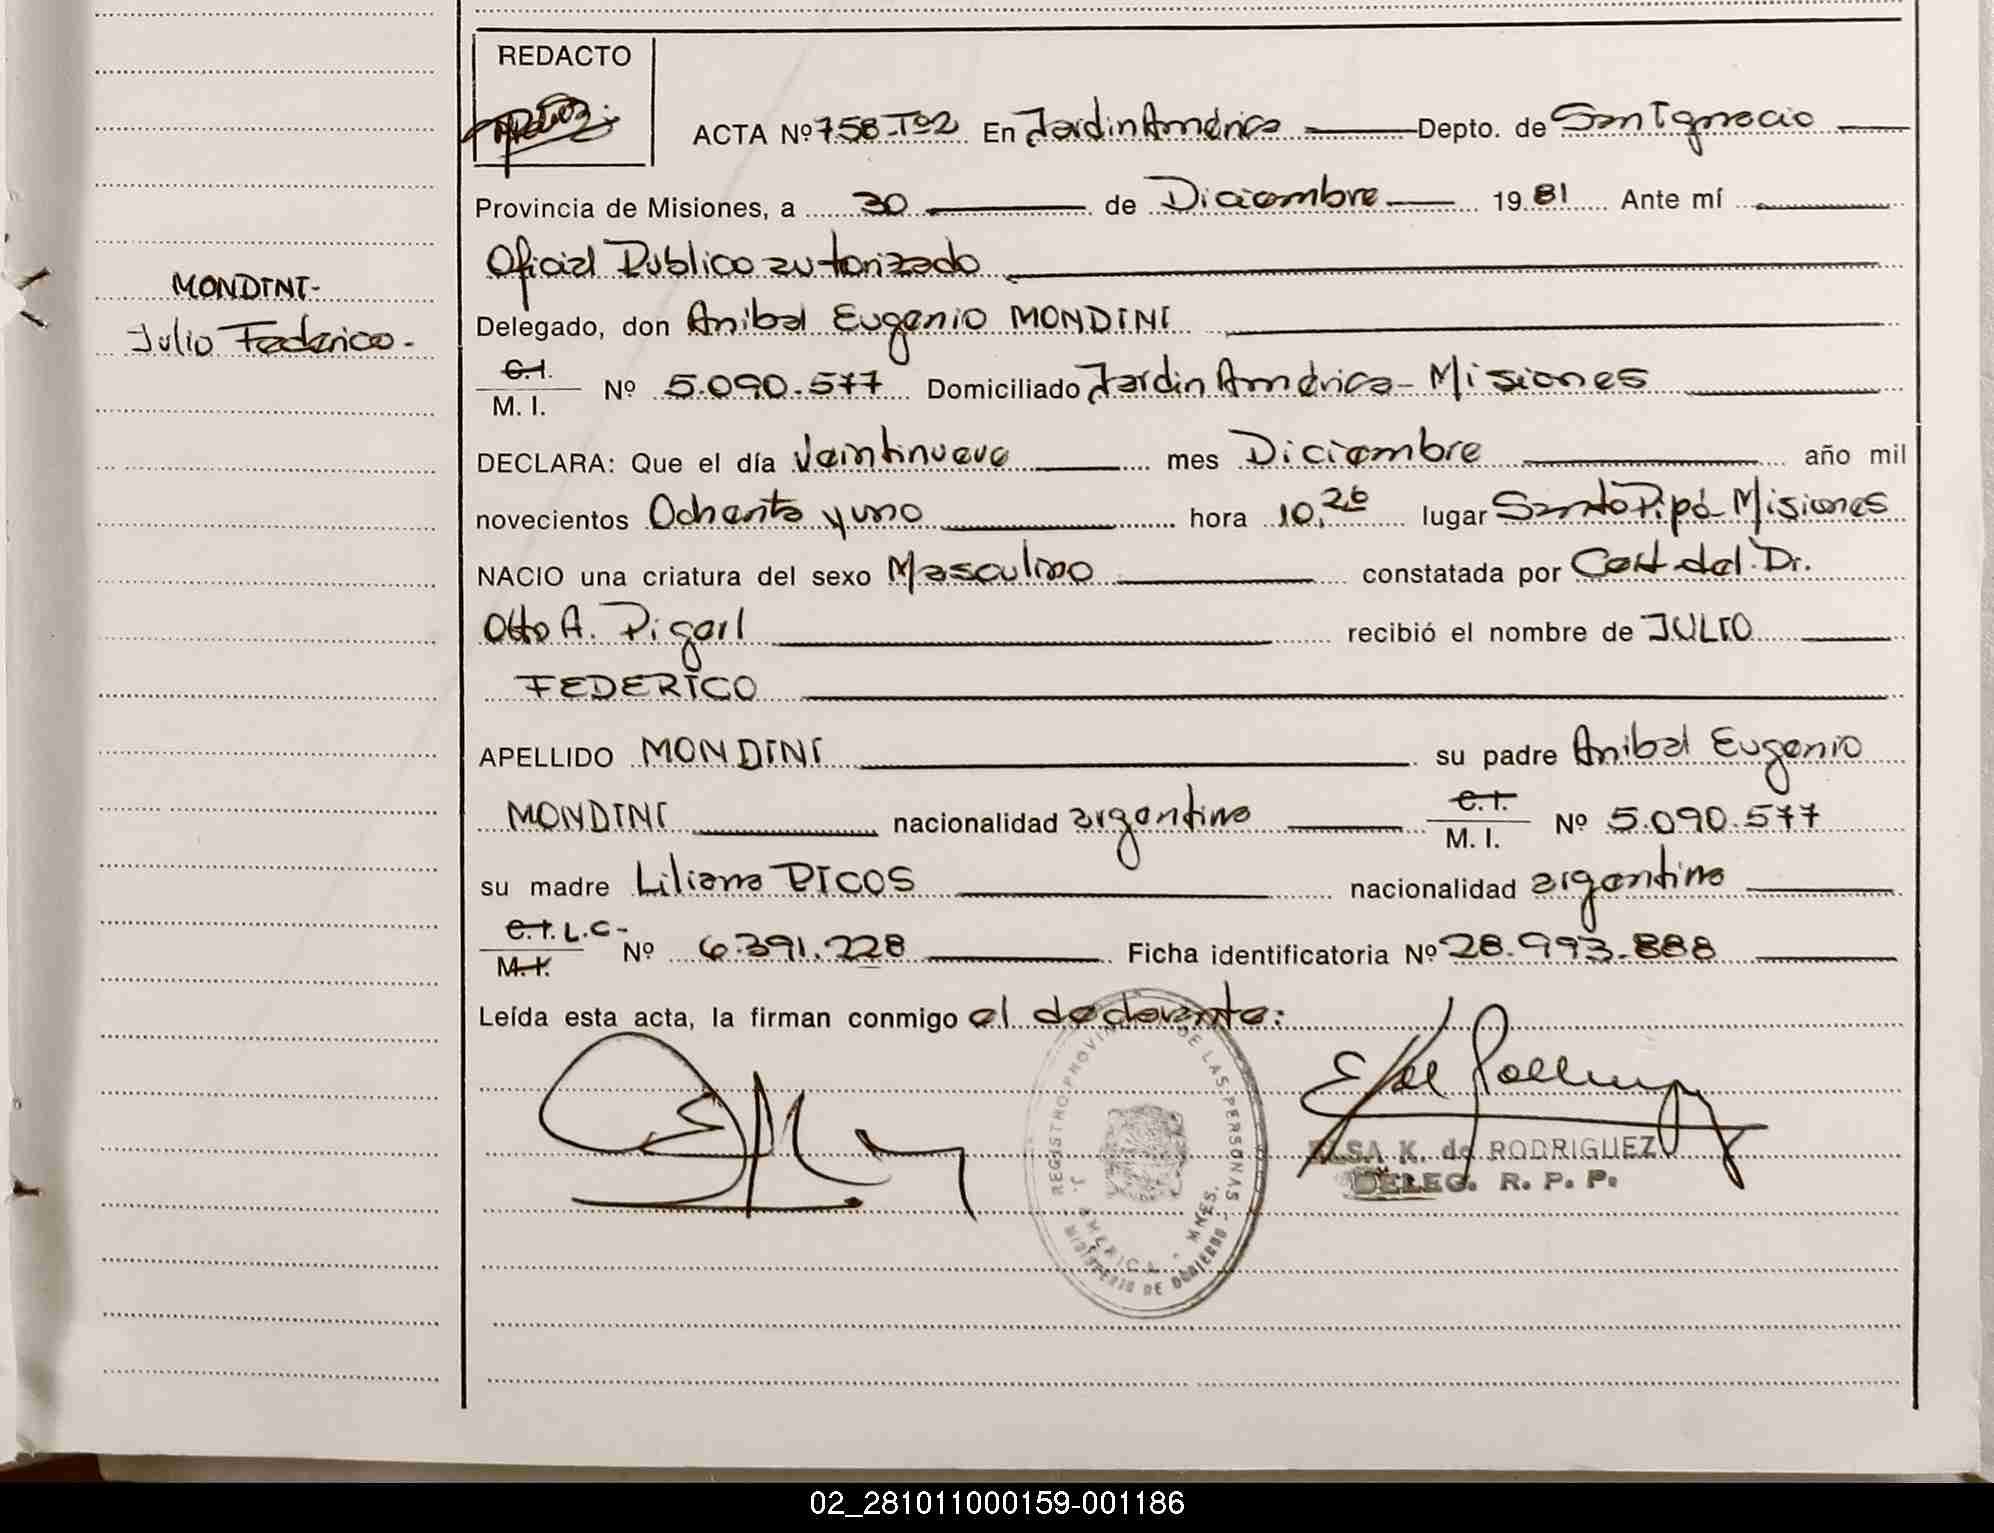 REDACTO
ACTA Nº 758-Tº2 En Jardin América Depto. de San Ignacio
Provincia de Misiones, a 30 de Diciembre 1981 Ante mí
Oficial Publico autorizado
Delegado, don Anibal Eugenio MONDINI
C.I.
M. I. Nº 5.090.577 Domiciliado Jardin América - Misiones
DECLARA: Que el día Veintinueve mes Diciembre año mil
novecientos Ochenta y uno hora 10,26 lugar Santo Pipó - Misiones
NACIO una criatura del sexo Masculino constatada por Cert. del Dr.
Otto A. recibió el nombre de JULIO
FEDERICO
APELLIDO MONDINI su padre Anibal Eugenio
MONDINI nacionalidad argentino C.I. M. I. Nº 5.090.577
su madre Liliana PICOS nacionalidad argentina
C.I. L.C-
M.I. Nº 6.391.228 Ficha identificatoria Nº 28.993.888
Leída esta acta, la firman conmigo el declarante:
MONDINI-
Julio Federico-
REGISTRO PROVINCIAL DE LAS PERSONAS
J. AMERICA - MNES.
MINISTERIO DE GOBIERNO
ELSA K. de RODRIGUEZ
DELEG. R. P. P.
02_281011000159-001186